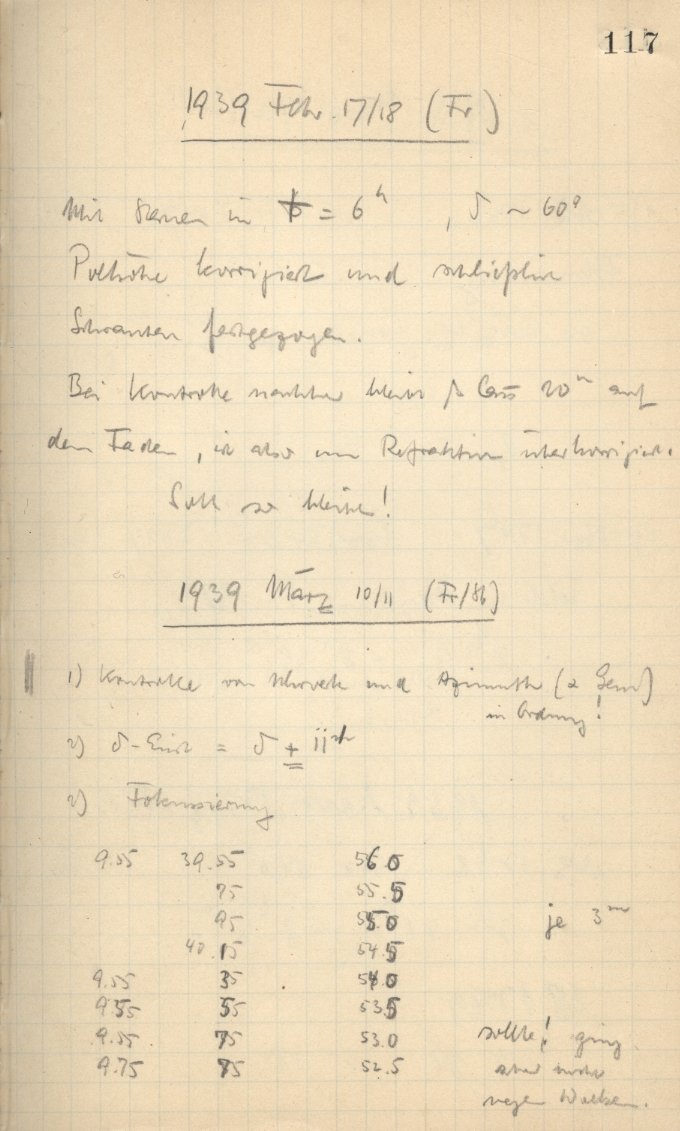 117
1939 Febr. 17/18 (Fr)
Mit Sternen in t = 6h , δ ~ 60°
Polhöhe korrigiert und schließlich
Schrauben festgezogen.
Bei Kontrolle nachher bleibt β Cass 20m auf
dem Faden, ist also um Refraktion überkorrigiert.
Soll so bleiben!
1939 März 10/11 (Fr/Sb)
1) Kontrolle von und Azimuth (α Gem)
in Ordnung!
2) δ-Einst = δ +
2) Fokussierung
9.55 39.55 56.0
75 55.5
95 55.0 je 3m
40.15 54.5
9.55 35 54.0
9.55 55 53.5
9.55 75 53.0 sollte! ging
9.75 75 52.5 aber nicht
wegen Wolken.